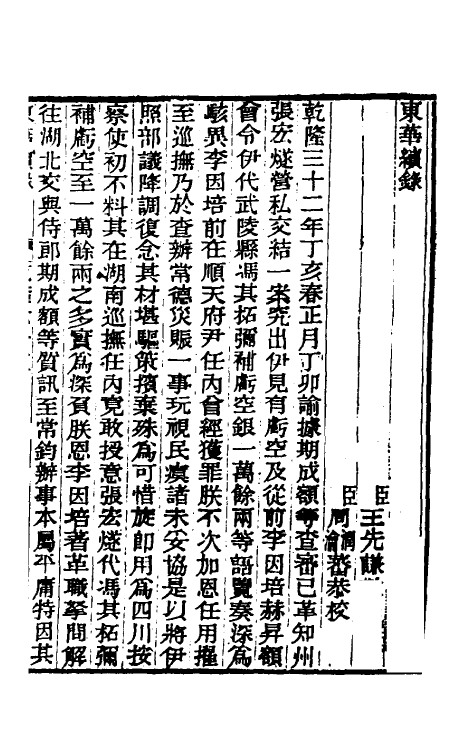 東華續錄
臣王先謙
臣周瀹蕃恭校
乾隆三十二年丁亥春正月丁卯諭據期成額等查審已革知州
張宏燧營私交結一案究出伊見有虧空及從前李因培赫昇額
會令伊代武陵縣馮其柘彌補虧空銀一萬餘兩等語覽奏深爲
駭異李因培前在順天府尹任內曾經獲罪朕不次加恩任用擢
至巡撫乃於查辦常德災賑一事玩視民瘼諸未妥協是以將伊
照部議降調復念其材堪驅策擯棄殊爲可惜旋即用爲四川按
察使初不料其在湖南巡撫任內竟敢授意張宏燧代馮其柘彌
補虧空至一萬餘兩之多實爲深負朕恩李因培著革職拏問解
往湖北交與侍郎期成額等質訊至常鈞辦事本屬平庸特因其